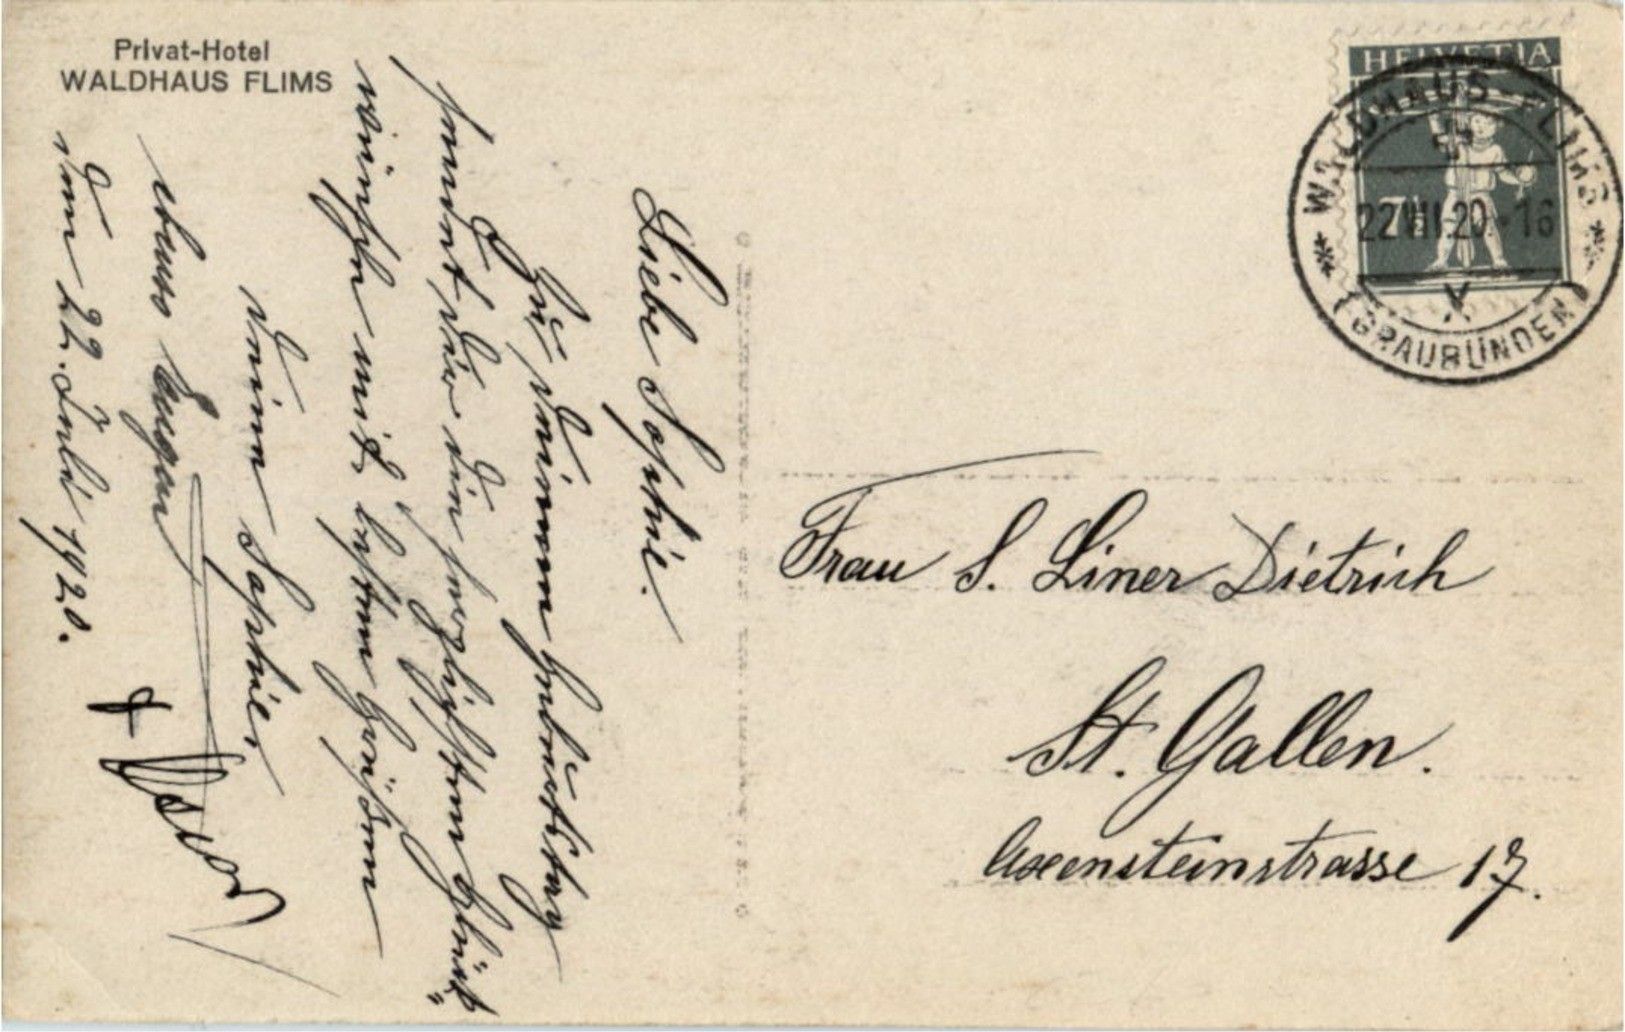 Privat-Hotel
WALDHAUS FLIMS
Liebe Sophie.
Zu Deinem Geburtstag
sendet Dir die herzlichsten Glück-
wünsche mit besten Grüssen
Deine Sophie
etwas Eugen
& Oscar
den 22. Juli 1920.
HELVETIA
7½
WALDHAUS-FLIMS
22.VII.20.-16
(GRAUBÜNDEN)
Frau S. Liner Dietrich
St. Gallen.
Axensteinstrasse 17.